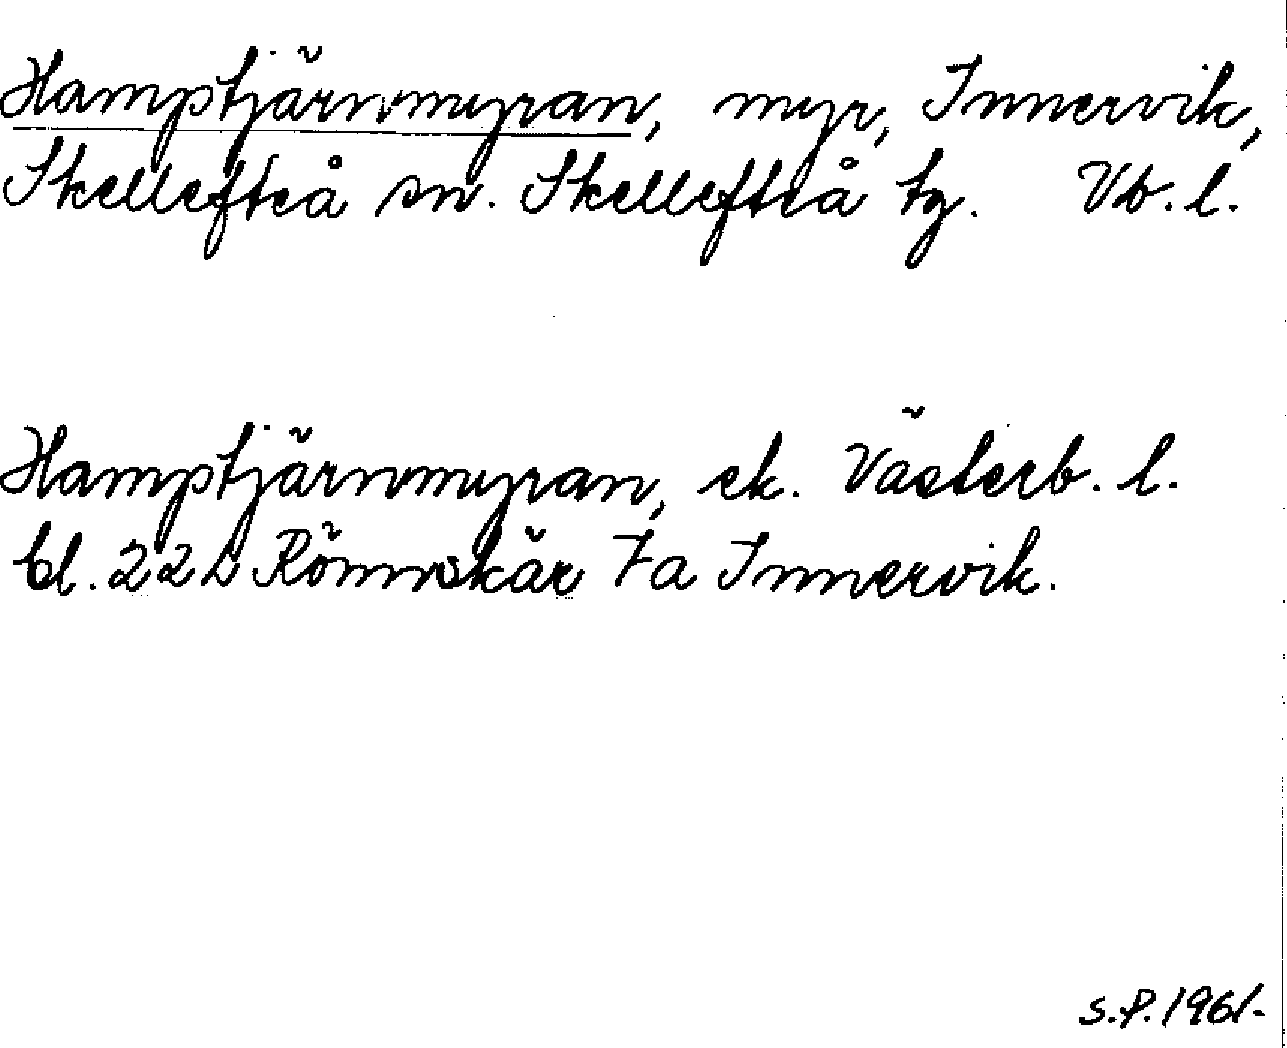 Hamptjärnmyran, myr, Innervik,
Skellefteå sn. Skellefteå tg. Vb. l.
Hamptjärnmyran, ek. Västerb. l.
bl. 22 L Rönnskär 7a Innervik.
S.P. 1961.